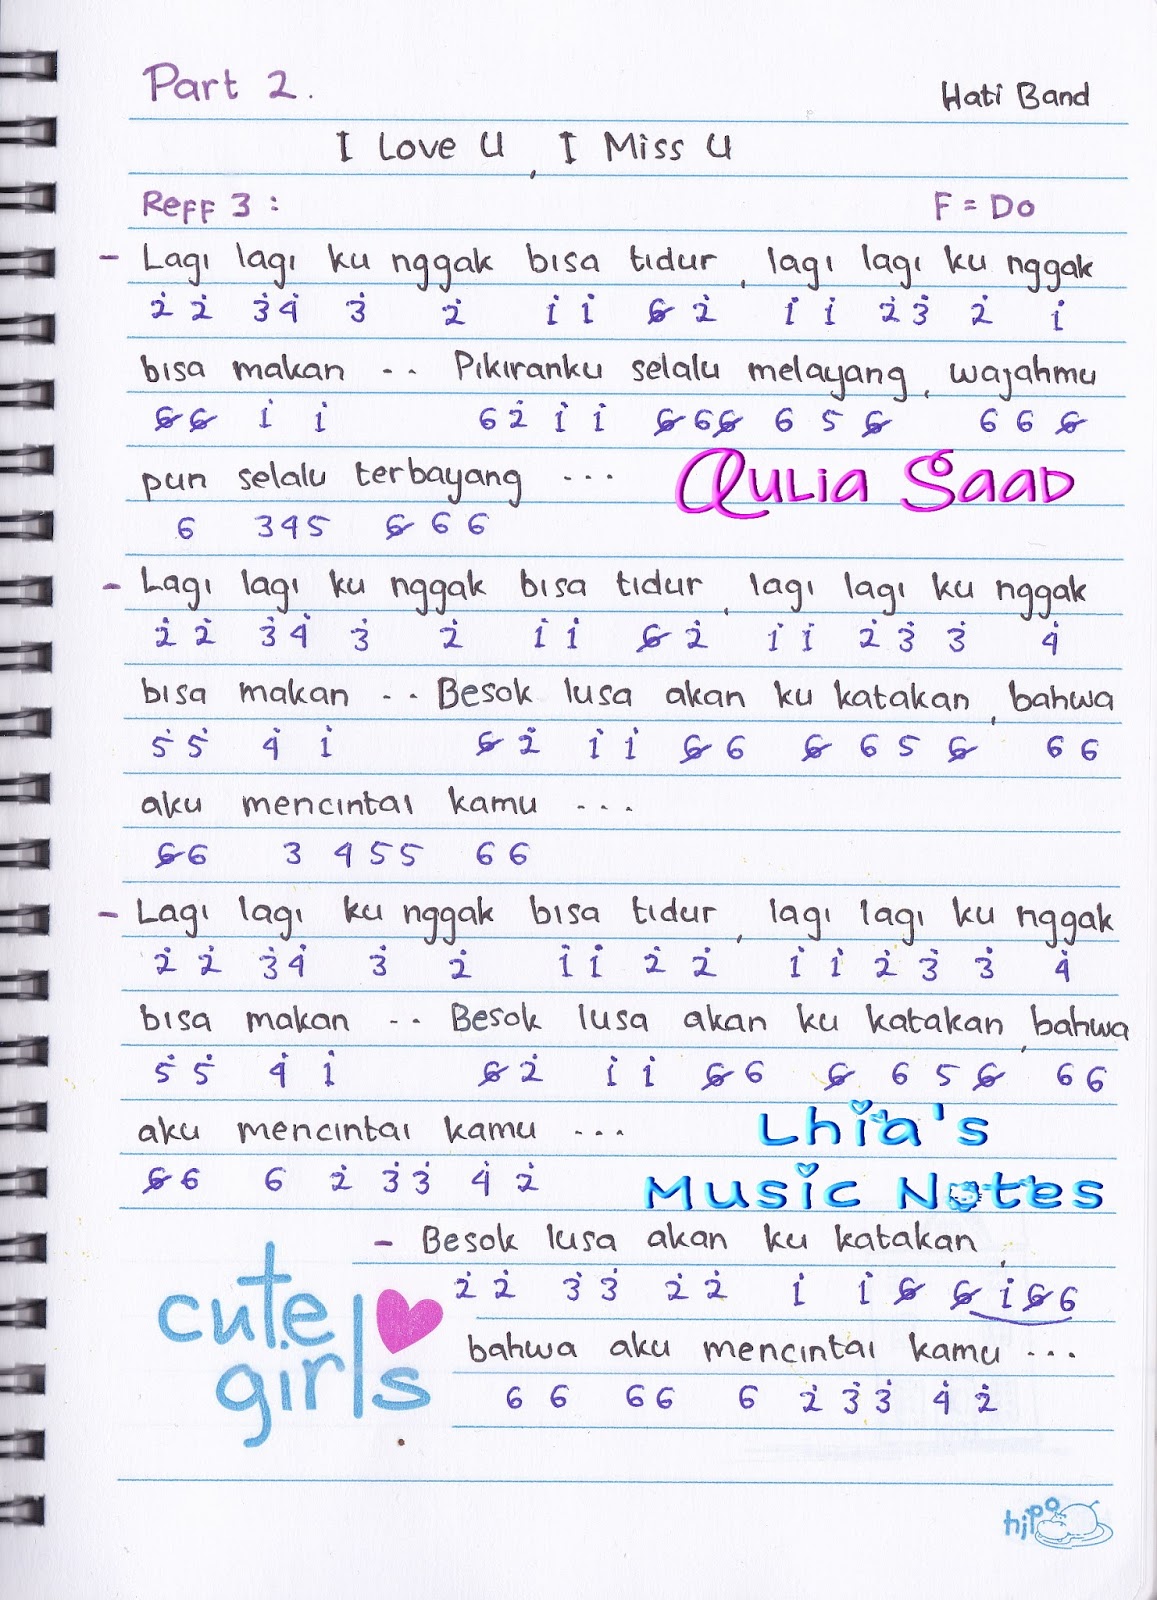 Part 2.
Hati Band
I Love U, I Miss U
Reff 3 :
F = Do
- Lagi lagi ku nggak bisa tidur, lagi lagi ku nggak
2̇ 2̇ 3̇ 4̇ 3̇ 2̇ 1̇ 1̇ 6̸ 2̇ 1̇ 1̇ 2̇ 3̇ 2̇ 1̇
bisa makan .. Pikiranku selalu melayang, wajahmu
6̸ 6̸ 1̇ 1̇ 6 2̇ 1̇ 1̇ 6̸ 6 6̸ 6 5 6̸ 6 6 6̸
pun selalu terbayang ...
Qulia Saad
6 3 4 5 6̸ 6 6
- Lagi lagi ku nggak bisa tidur, lagi lagi ku nggak
2̇ 2̇ 3̇ 4̇ 3̇ 2̇ 1̇ 1̇ 6̸ 2̇ 1̇ 1̇ 2̇ 3̇ 3̇ 4̇
bisa makan .. Besok lusa akan ku katakan, bahwa
5̇ 5̇ 4̇ 1̇ 6̸ 2̇ 1̇ 1̇ 6̸ 6 6̸ 6 5 6̸ 6 6
aku mencintai kamu ...
6̸ 6 3 4 5 5 6 6
- Lagi lagi ku nggak bisa tidur, lagi lagi ku nggak
2̇ 2̇ 3̇ 4̇ 3̇ 2̇ 1̇ 1̇ 2̇ 2̇ 1̇ 1̇ 2̇ 3̇ 3̇ 4̇
bisa makan .. Besok lusa akan ku katakan, bahwa
5̇ 5̇ 4̇ 1̇ 6̸ 2̇ 1̇ 1̇ 6̸ 6 6̸ 6 5 6̸ 6 6
aku mencintai kamu ...
Lhia's
6̸ 6 6 2̇ 3̇ 3̇ 4̇ 2̇
Music Notes
- Besok lusa akan ku katakan,
2̇ 2̇ 3̇ 3̇ 2̇ 2̇ 1̇ 1̇ 6̸ 6̸ 1̇ 6̸ 6
cute
bahwa aku mencintai kamu ...
girls
6 6 6 6 6 2̇ 3̇ 3̇ 4̇ 2̇
hipo